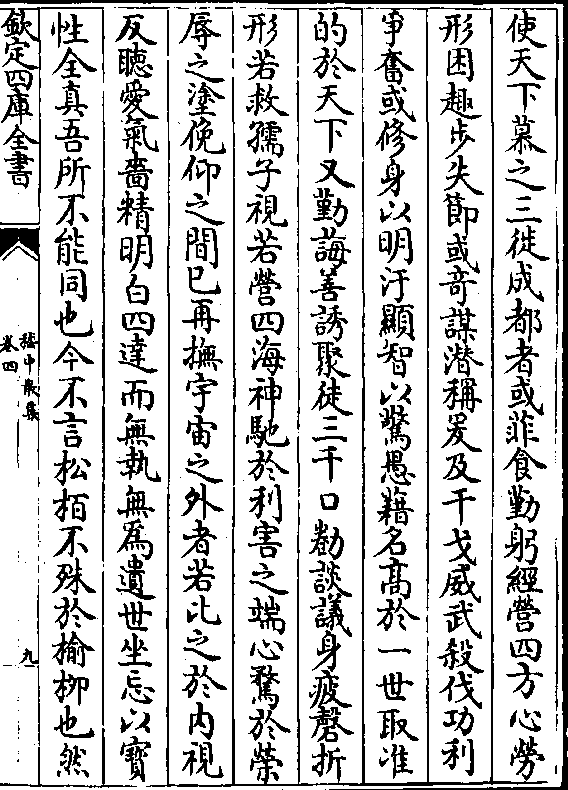 使天下慕之三徙成都者或菲食勤躬經營四方心勞
形困趣步失節或竒謀潛稱爰及干戈威武殺伐功利
爭奮或修身以明汙顯智以驚愚藉名髙於一世取准
的於天下又勤誨善誘聚徒三千口勌談議身疲磬折
形若救孺子視若營四海神馳於利害之端心騖於榮
辱之塗俛仰之間已再撫宇宙之外者若比之於内視
反聴愛氣嗇精明白四達而無執無為遺世坐忘以寳
性全真吾所不能同也今不言松栢不殊於榆柳也然
欽定四庫全書
嵇中散集
卷四
九